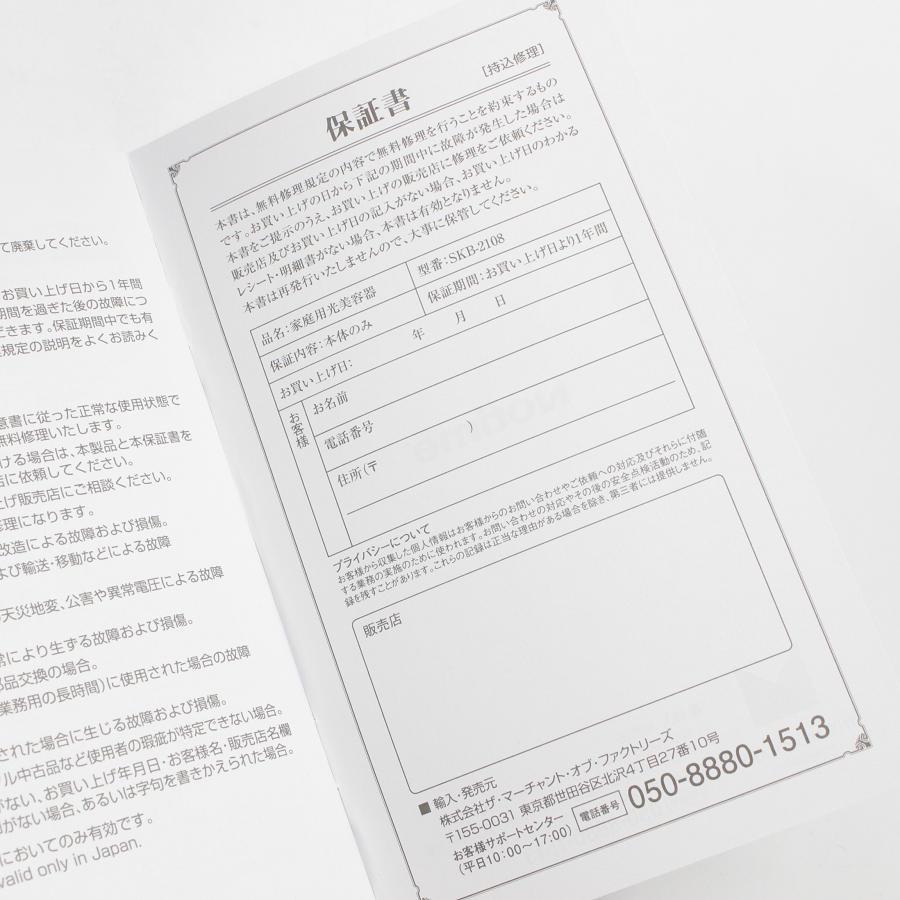 て廃棄してください。
お買い上げ日から1年間
期間を過ぎた後の故障につ
できます。保証期間中でも有
規定の説明をよくお読みく
意書に従った正常な使用状態で
無料修理いたします。
ける場合は、本製品と本保証書を
店に依頼してください。
上げ販売店にご相談ください。
修理になります。
改造による故障および損傷。
よび輸送・移動などによる故障
天災地変、公害や異常電圧による故障
常により生ずる故障および損傷。
部品交換の場合。
業務用の長時間)に使用された場合の故障
された場合に生じる故障および損傷。
ル中古品など使用者の瑕疵が特定できない場合。
がない、お買い上げ年月日・お客様名・販売店名欄
がない場合、あるいは字句を書きかえられた場合。
においてのみ有効です。
valid only in Japan.
保証書
[持込修理]
本書は、無料修理規定の内容で無料修理を行うことを約束するもの
です。お買い上げの日から下記の期間中に故障が発生した場合は
本書をご提示のうえ、お買い上げの販売店に修理をご依頼ください。
販売店及びお買い上げ日の記入がない場合、お買い上げ日のわかる
レシート・明細書がない場合、本書は有効となりません。
本書は再発行いたしませんので、大事に保管してください。
品名:家庭用光美容器
型番:SKB-2108
保証内容:本体のみ
保証期間:お買い上げ日より1年間
お買い上げ日: 年 月 日
お客様
お名前
電話番号 )
住所(〒
プライバシーについて
お客様から収集した個人情報はお客様からのお問い合わせやご依頼への対応及びそれらに付随
する業務の実施のために使われます。お問い合わせの対応やその後の安全点検活動のため、記
録を残すことがあります。これらの記録は正当な理由がある場合を除き、第三者には提供しません。
販売店
■ 輸入・発売元
株式会社ザ・マーチャント・オブ・ファクトリーズ
〒155-0031 東京都世田谷区北沢4丁目27番10号
お客様サポートセンター
(平日10:00〜17:00)
電話番号
050-8880-1513